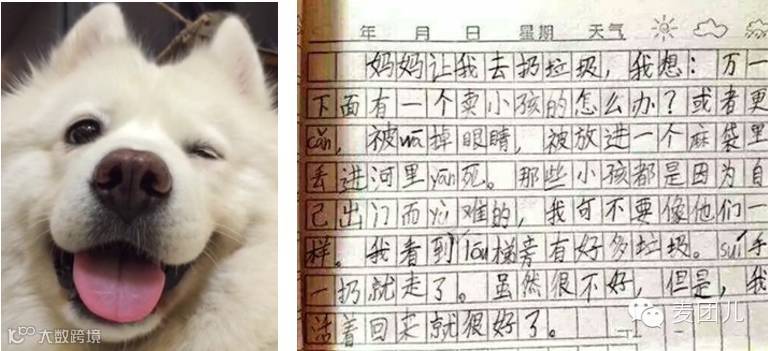 年 月 日 星期 天气
妈妈让我去扔垃圾，我想：万一
下面有一个卖小孩的怎么办？或者更
cǎn，被wā掉眼睛，被放进一个麻袋里
丢进河里yān死。那些小孩都是因为自
己出门而yù难的，我可不要像他们一
样。我看到lóu梯旁有好多垃圾。suí手
一扔就走了。虽然很不好，但是，我
活着回来就很好了。
10100 大数跨境
麦团儿